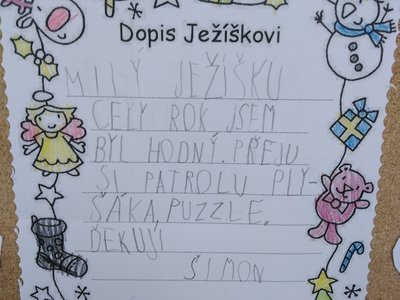 Dopis Ježíškovi
MILÝ JEŽÍŠKU
CELÝ ROK JSEM
BYL HODNÝ. PŘEJU
SI PATROLU PLY-
ŠÁKA, PUZZLE.
ĎEKUJI
ŠIMON